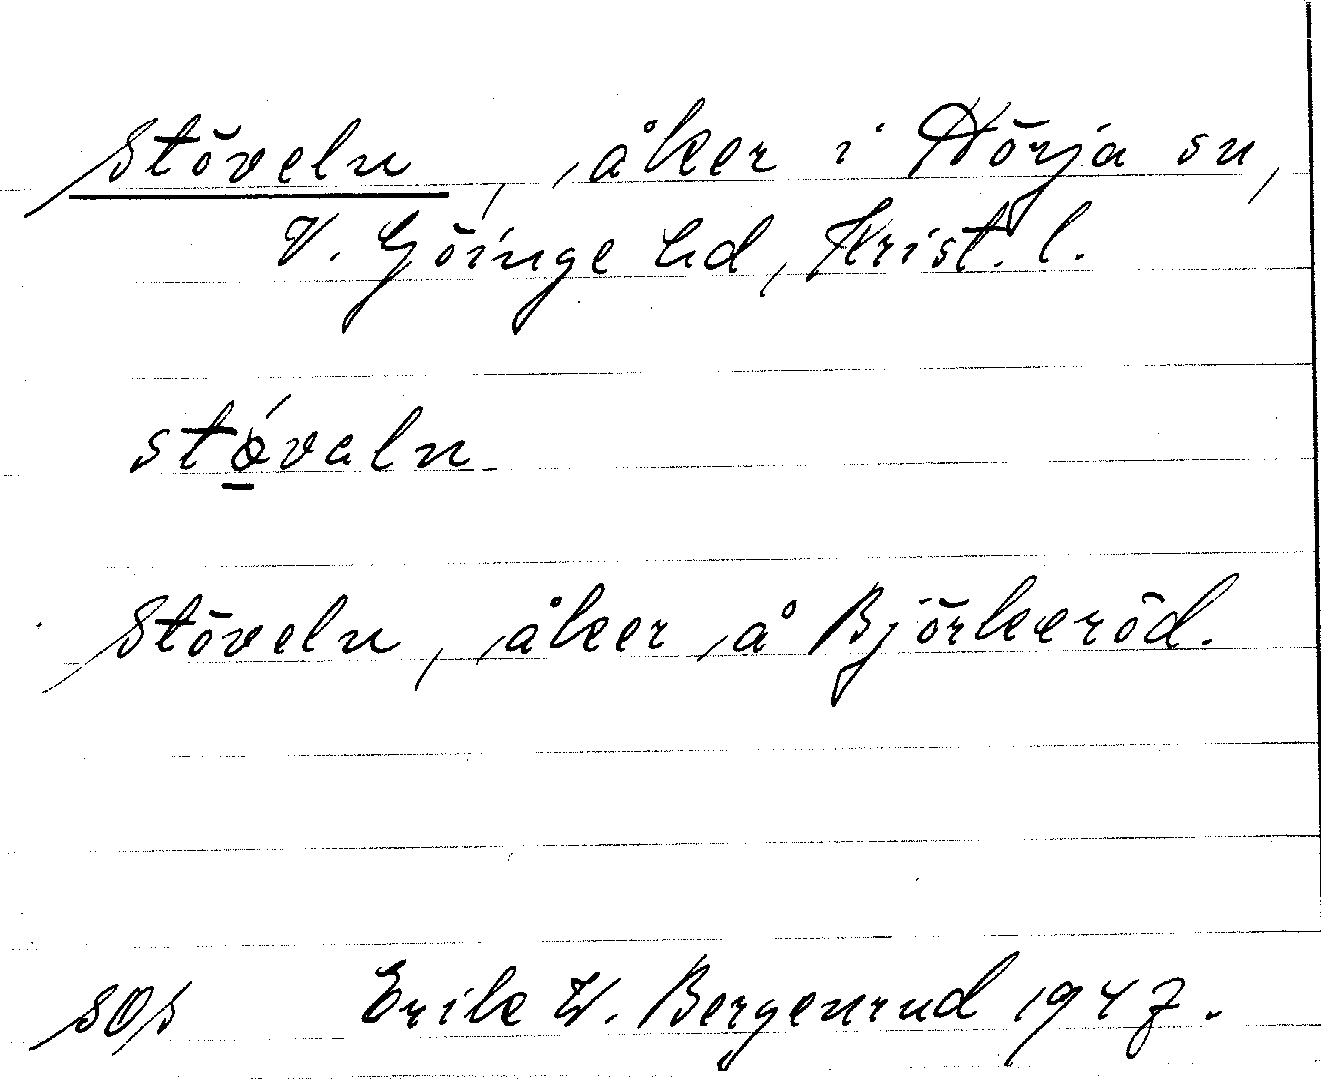 Stöveln, åker i Hörja sn,
V. Göinge hd, Krist. l.
stǿ̱valn
Stöveln, åker å Björkeröd.
SOS Erik W. Bergenrud 1947.